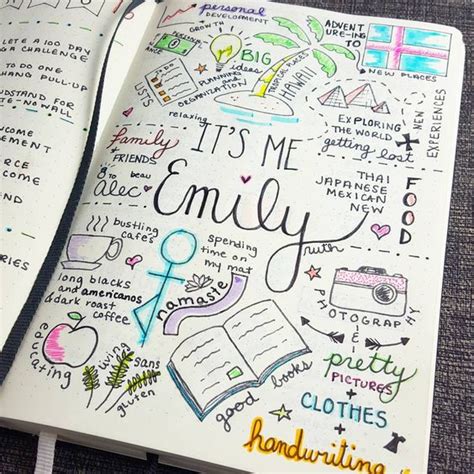 LETE A 100 DAY
GA CHALLENGE
TO DO ONE
HANG PULL-UP
NDSTAND FOR
TE-NO WALL
EMENT
LCOME
ERCE
COME
ERIES
personal
DEVELOPMENT
GROWTH
LISTS
BIG
ideas
PLANNING and
ORGANIZATION
relaxing
TROPICAL PLACES
HAWAII
ADVENT
URE-ING TO
NEW PLACES
NEW EXPERIENCES
EXPLORING
THE WORLD
getting lost
family
+ FRIENDS
to beau
Alec
IT'S ME
Emily
ruth
THAI
JAPANESE
MEXICAN
NEW
FOOD
bustling
cafes
long blacks
and americanos
& dark roast
coffee
spending
time on
my mat
namaste
educating
living
sans
gluten
good books
PHOTOGRAPHY
&
pretty
PICTURES
+
CLOTHES
+
handwriting